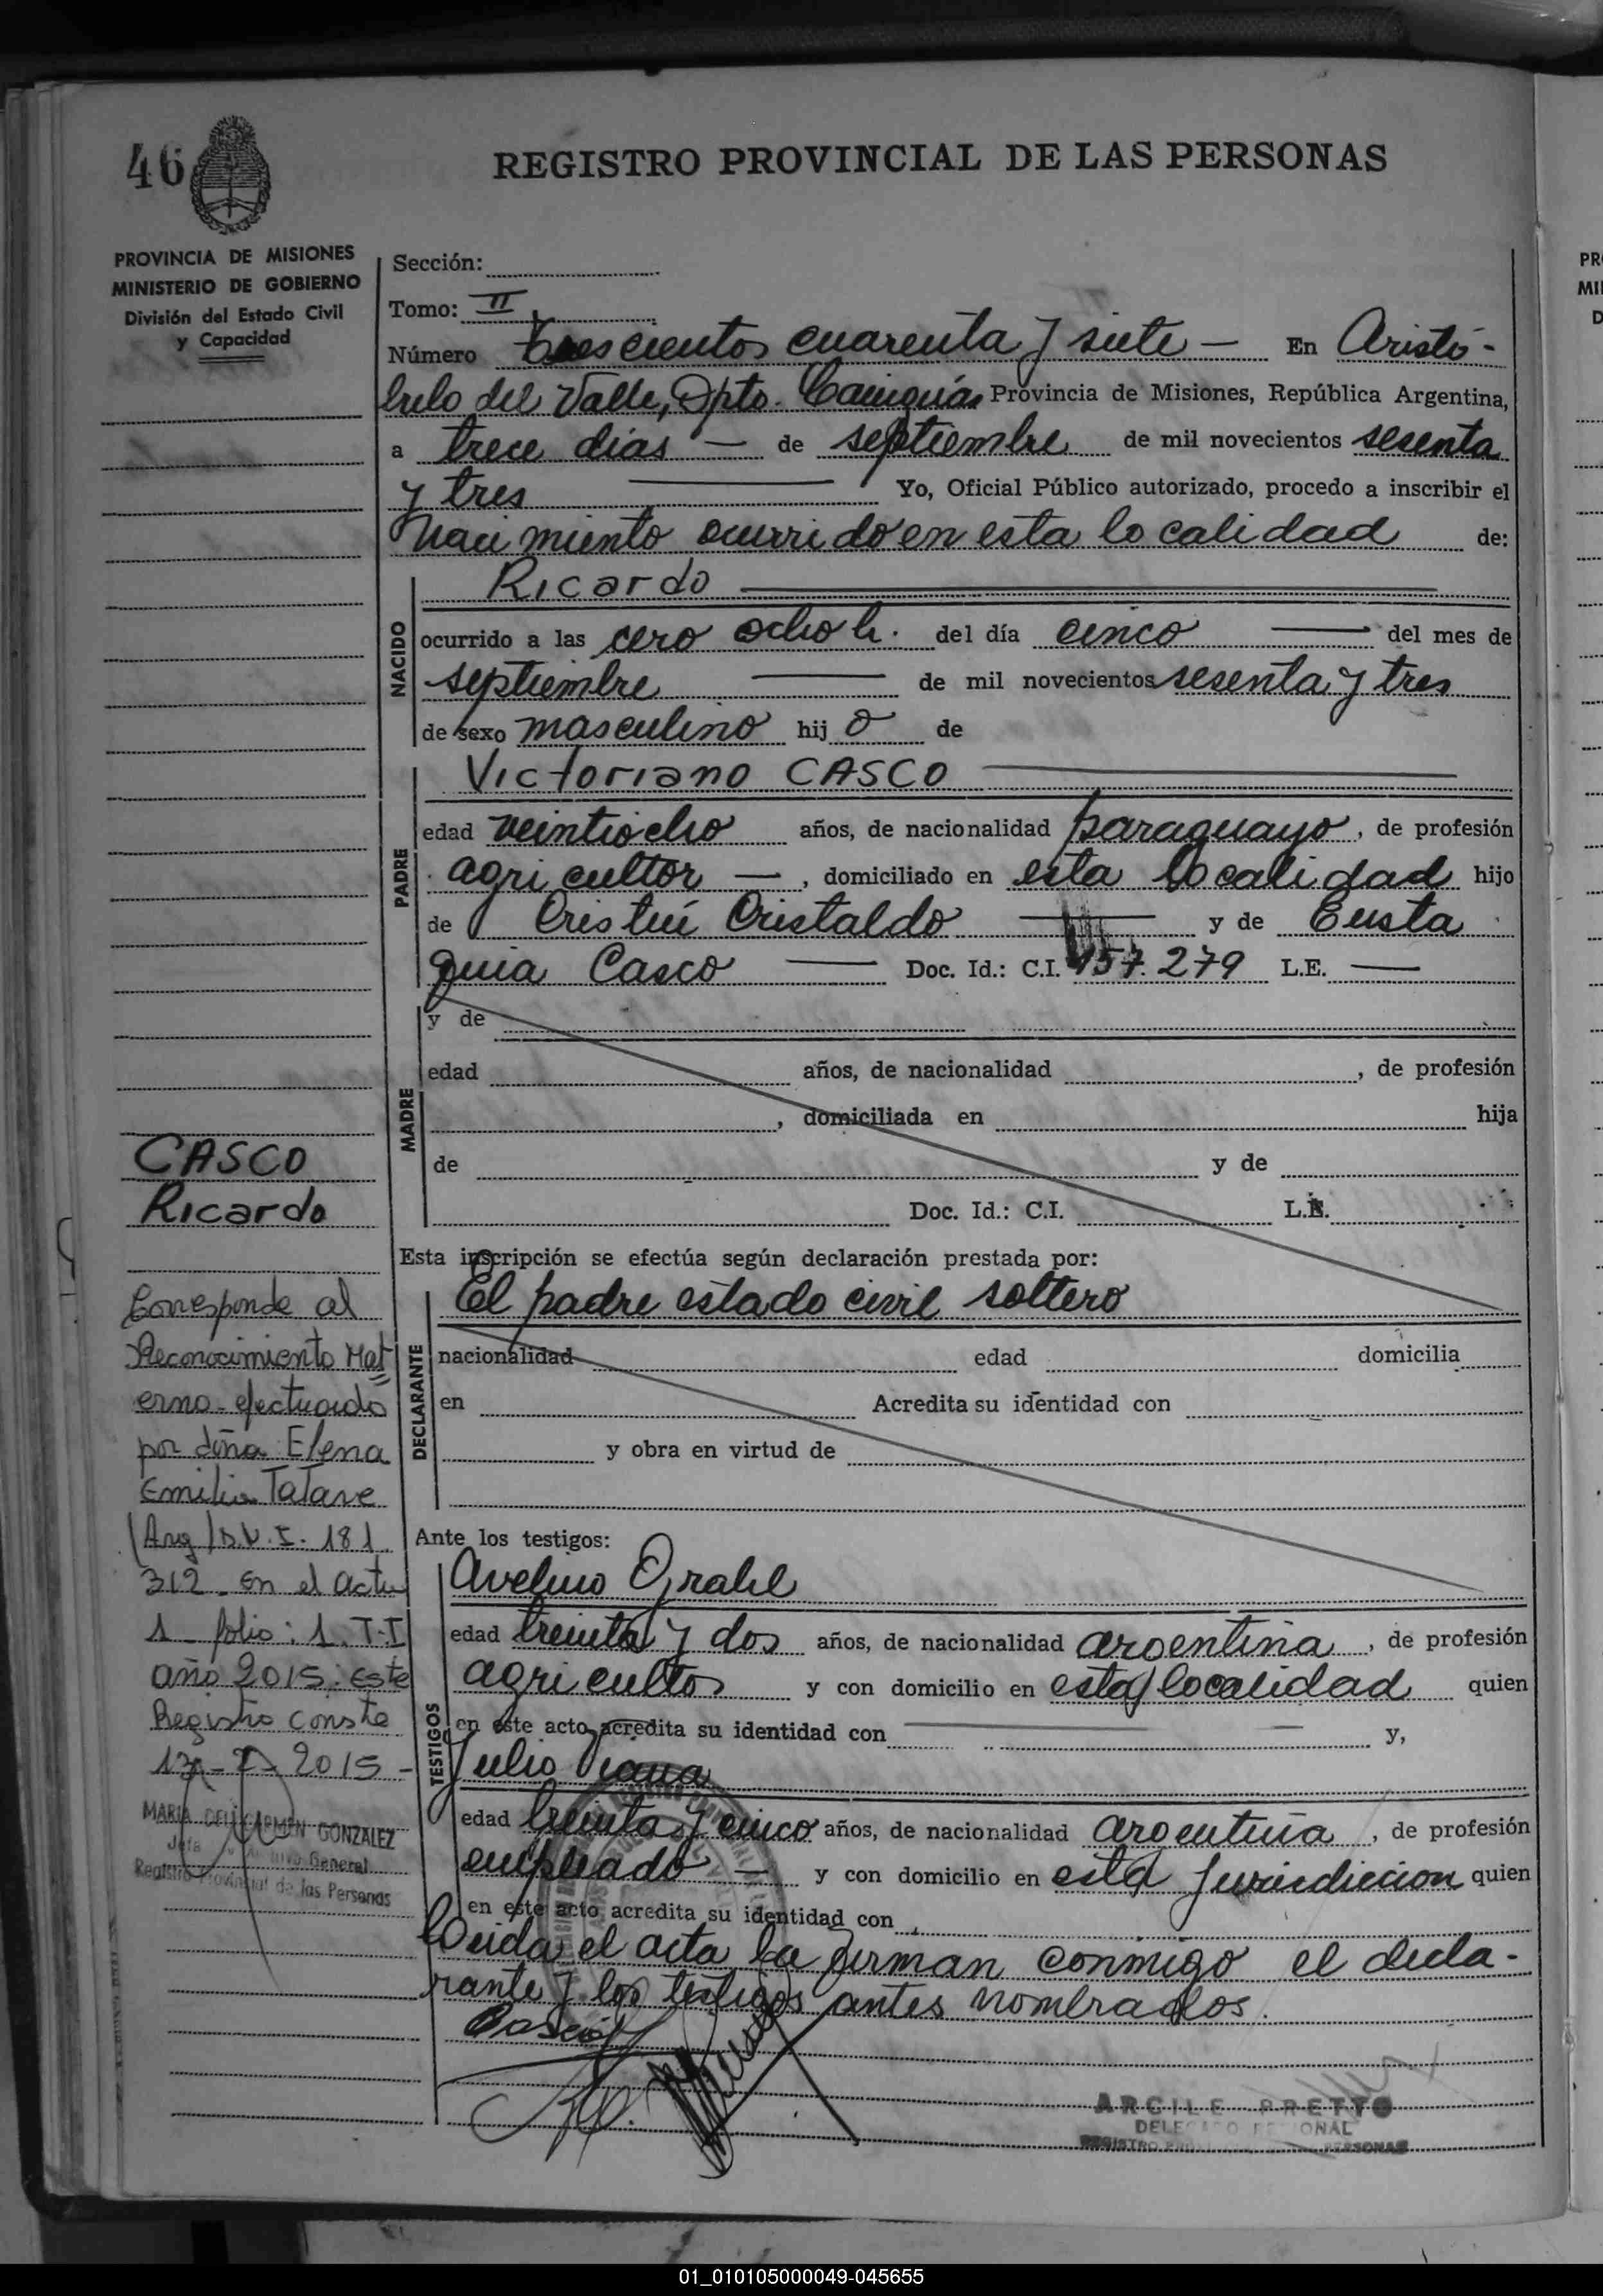 46
REGISTRO PROVINCIAL DE LAS PERSONAS
PROVINCIA DE MISIONES
MINISTERIO DE GOBIERNO
División del Estado Civil
y Capacidad
Sección:
Tomo: II
Número trescientos cuarenta y siete — En Aristó-
bulo del Valle, Dpto. Cainguás Provincia de Misiones, República Argentina,
a trece días — de septiembre de mil novecientos sesenta
y tres — Yo, Oficial Público autorizado, procedo a inscribir el
Nacimiento ocurrido en esta localidad de:
NACIDO
Ricardo
ocurrido a las cero ocho h. del día cinco — del mes de
septiembre — de mil novecientos sesenta y tres
de sexo masculino hijo de
PADRE
Victoriano CASCO
edad veintiocho años, de nacionalidad paraguayo, de profesión
agricultor —, domiciliado en esta localidad hijo
de Cristaldo — y de Eusta
quia Casco — Doc. Id.: C.I. 157.279 L.E. —
MADRE
y de
edad años, de nacionalidad , de profesión
, domiciliada en hija
de y de
Doc. Id.: C.I. L.E.
Esta inscripción se efectúa según declaración prestada por:
DECLARANTE
El padre estado civil soltero
nacionalidad edad domicilia
en Acredita su identidad con
y obra en virtud de
Ante los testigos:
TESTIGOS
Avelino
edad treinta y dos años, de nacionalidad argentina, de profesión
agricultor y con domicilio en esta localidad quien
en este acto acredita su identidad con — y,
Julio Viana
edad treinta y cinco años, de nacionalidad argentina, de profesión
empleado — y con domicilio en esta Jurisdiccion quien
en este acto acredita su identidad con
Leida el acta la firman conmigo el decla-
rante y los testigos antes nombrados.
Casco
ARCILE PRETTO
DELEGADO REGIONAL
REGISTRO PERSONAS
CASCO
Ricardo
Corresponde al
Reconocimiento Mat
erno efectuado
por doña Elena
Emilia Tatare
(Arg) D.N.I. 181.
312 en el acta
1 folio: 1. T-I
año 2015. Este
Registro conste
13-2-2015-
MARIA DEL CARMEN GONZALEZ
Jefa Archivo General
Registro Provincial de las Personas
01_010105000049-045655